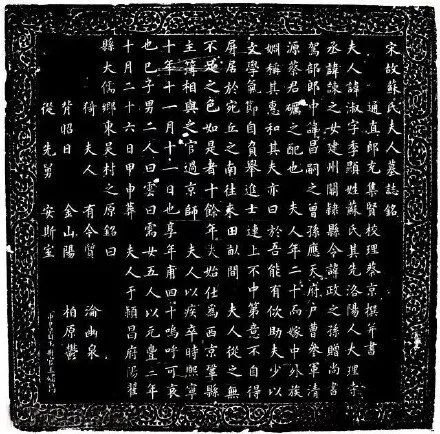 宋故蘇氏夫人墓誌銘
通直郎充集賢校理蔡京撰并書
夫人諱淑字季顒姓蘇氏其先洛陽人大理寺
丞諱諫之女建州關隸縣令諱政之孫贈尚書
駕部郎中諱昌嗣之曾孫應天府戶曹參軍清
源蔡君礪之配也 夫人年二十而嫁中外族
姻稱其惠和其夫亦曰於吾能有攸助夫少以
文學氣節自負舉進士連上不中第意不自得
屏居於宛丘之南往來田畝間 夫人從之無
不足之色如是者十餘年夫始仕為西京鞏縣
主簿相與之官過京師 夫人以疾卒時熙寧
十年十一月十一日也享年甫四十嗚呼可哀
也已子男二人曰雲曰霱女五人以元豐二年
十月二十六日甲申葬 夫人于潁昌府陽翟
縣大儒鄉東吳村之原銘曰
倚夫人 有令質 淪幽泉
背昭日 金山陽 柏原鬱
從先舅 安斯室